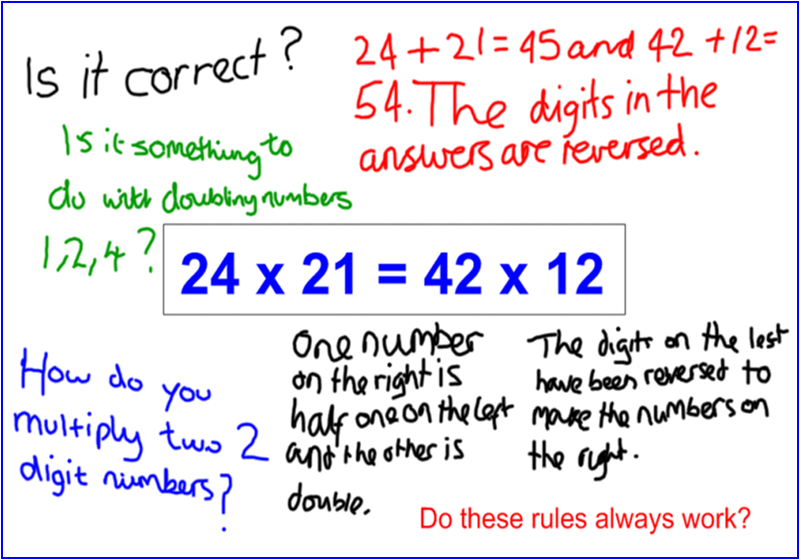 Is it correct?
24 + 21 = 45 and 42 + 12 =
54. The digits in the
answers are reversed.
Is it something to
do with doubling numbers
1, 2, 4 ?
24 x 21 = 42 x 12
How do you
multiply two 2
digit numbers?
One number
on the right is
half one on the left
and the other is
double.
The digits on the lest
have been reversed to
make the numbers on
the right.
Do these rules always work?